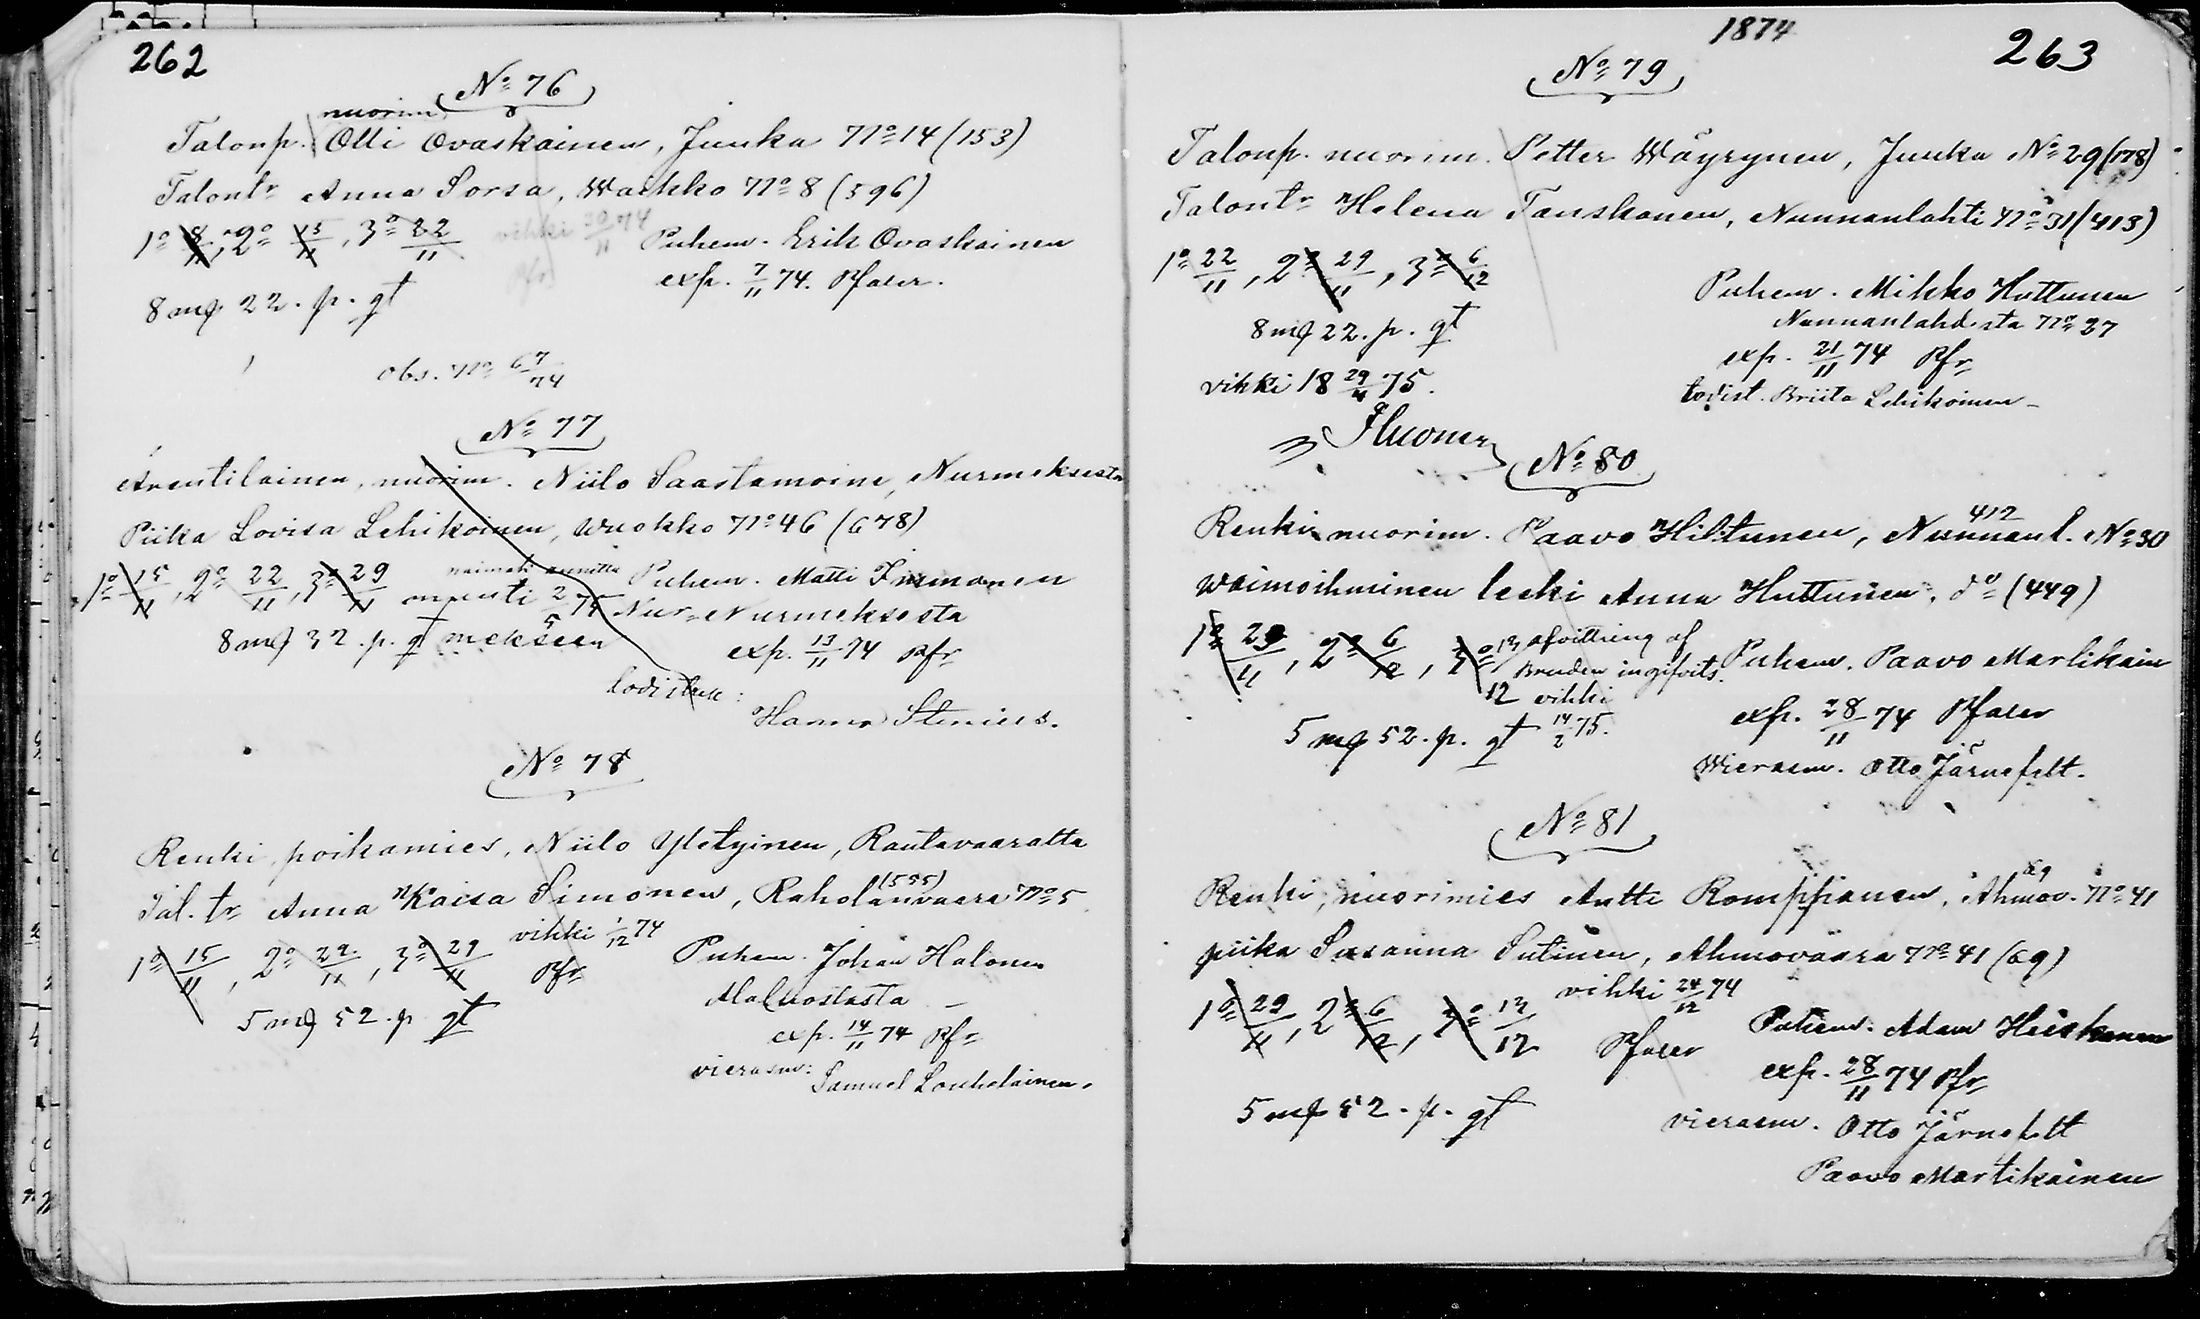 262
No 76
nuorim
Talonp. Olli Ovaskainen, Juuka No 14 (153)
Talontr Anna Sorsa, Waikko No 8 (596)
1o 8/11, 2o 15/11, 3o 22/11 vihki 30/11 74 Puhem. Erik Ovaskainen
Pfr exp. 7/11 74. Pfaler.
8 mg 22. p. gt
obs. No 67/74
No 77
Arentilainen, nuorim. Niilo Saastamoine, Nurmeksesta
Piika Lovisa Lehikoinen, Wuokko No 46 (678)
1o 15/11, 2o 22/11, 3o 29/11 muutti 2/5 75 Nur- Puhem. Matti
Nurmeksesta
8 mg 32. p. gt mekseen exp. 13/11 74 Pfr
todistaa:
Hanna Stenius.
No 78
Renki, poikamies, Niilo Yletyinen, Rautavaaralta
(555)
Tal. tr Anna Kaisa Simonen, Raholanvaara No 5
1o 15/11, 2o 22/11, 3o 29/11 vihki 1/12 74 Puhem. Johan Halonen
Pfr Aluostasta
5 mg 52. p. gt exp. 14/11 74 Pfr
vierasm: Samuel Louhelainen.
1874
263
No 79
Talonp. nuorim. Petter Wäyrynen, Juuka No 29 (178)
Talontr Helena Tanskanen, Nunnanlahti No 31 (413)
1o 22/11, 2o 29/11, 3o 6/12
Puhem. Mikko Huttunen
8 mg 22. p. gt Nunnanlahdesta No 27
exp. 21/11 74 Pfr
vihki 18 29/4 75. todist. Briita Lehikoinen
No 80
412
Renki nuorim. Paavo Hiltunen, Nunnanl. No 30
Waimoihminen leski Anna Huttunen, do (449)
1o 29/11, 2o 6/12, 3o 13/12 afvittring af
Bruden ingifvits. Puhem. Paavo Martikain
vihki
5 mg 52. p. gt 14/2 75. exp. 28/11 74 Pfaler
Wierasm. Otto Järnefelt.
No 81
69
Renki, nuorimies Antti Romppanen, Ahmov. No 41
piika Susanna Sutinen, Ahmovaara No 41 (69)
1o 29/11, 2o 6/12, 3o 13/12 vihki 24/12 74
Pfaler Puhem. Adam Heiskanen
exp. 28/11 74 Pfr
5 mg 52. p. gt vierasm. Otto Järnefelt
Paavo Martikainen